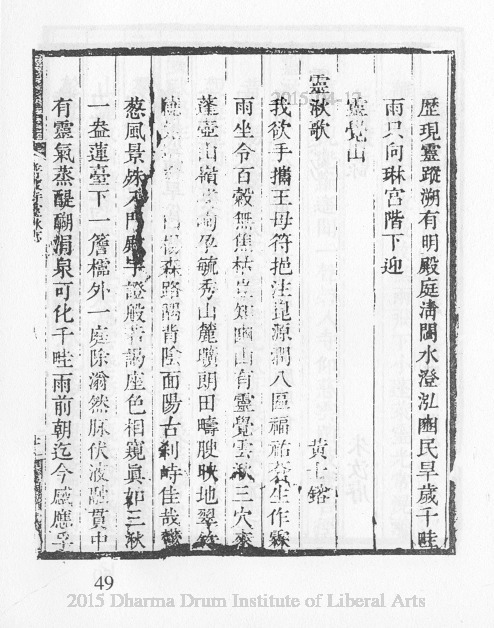 歷現靈蹤溯有明殿庭清閟水澄泓豳民旱歲千畦
雨只向琳宮階下迎
靈覺山
靈湫歌 黃士鎔
我欲手攜王母符挹注崑源潤八區福祐羣生作霖
雨坐令百穀無焦枯豈知豳山有靈覺雲湫三穴
蓬壺山嶺 孕毓秀山麓 朗田疇腴映地翠
森路隅背陰面陽古剎峙佳哉
葱風景殊 門殿宇證般若講座色相窺真如三湫
一盎蓮臺下一簷櫺外一庭除滃然脉伏波融貫中
有靈氣蒸醍醐涓泉可化千畦雨前朝迄今感應孚
49
2015 Dharma Drum Institute of Liberal Arts